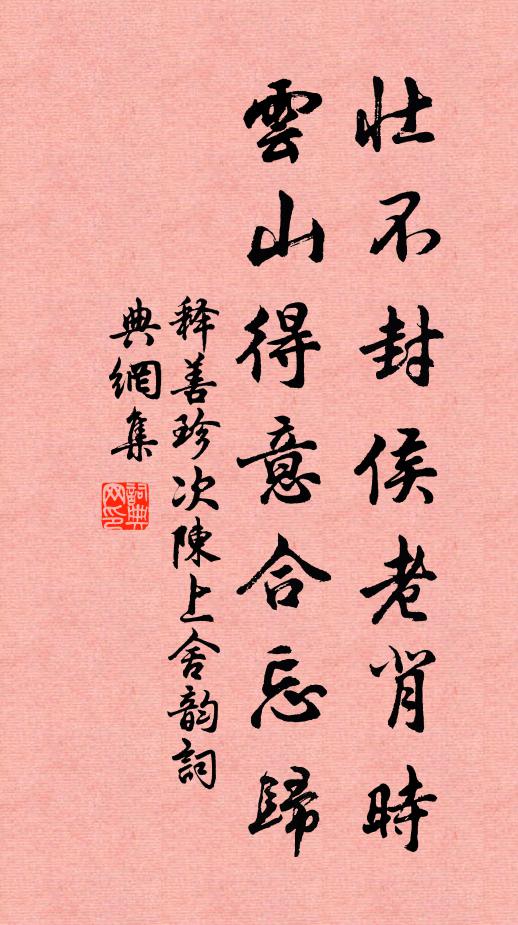 壮不封侯老背時
雲山得意合忘歸
释善珍次陳上舍韵詞
典網集
詞典网印